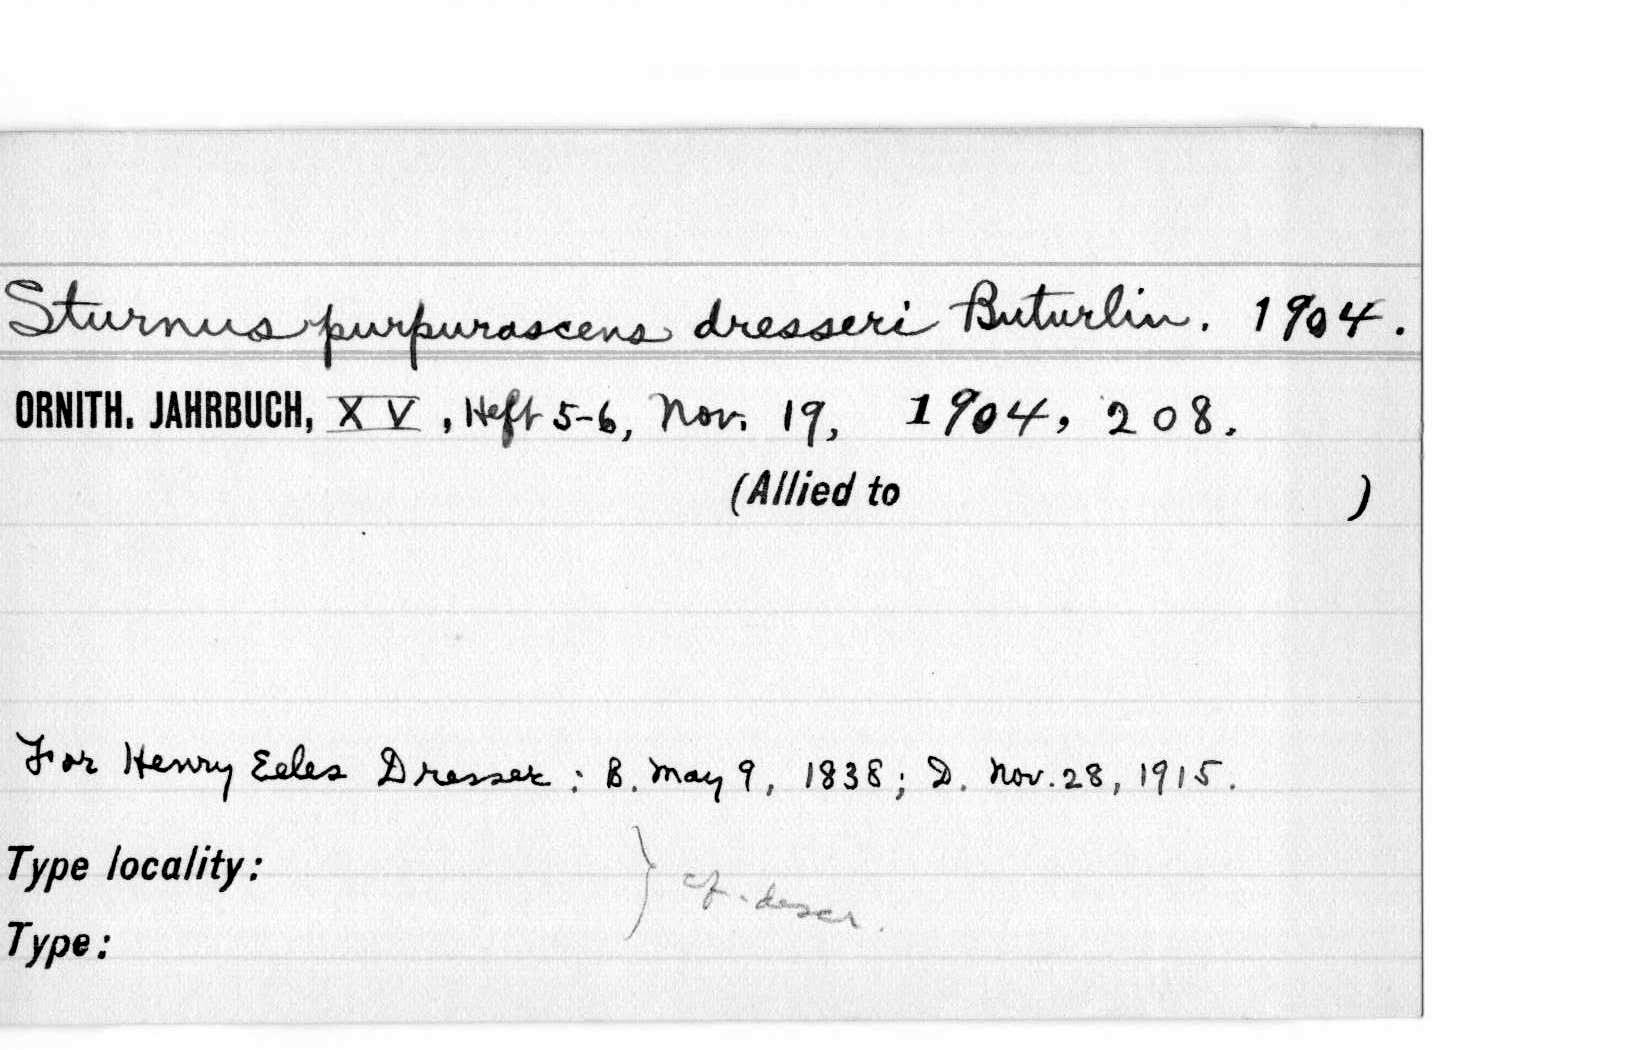 Sturnus purpurascens dresseri Buturlin. 1904.
ORNITH. JAHRBUCH, XV, Heft 5-6, Nov. 19, 1904, 208.
(Allied to )
For Henry Eeles Dresser: B. May 9, 1838; D. Nov. 28, 1915.
Type locality:
} cf. descr.
Type: